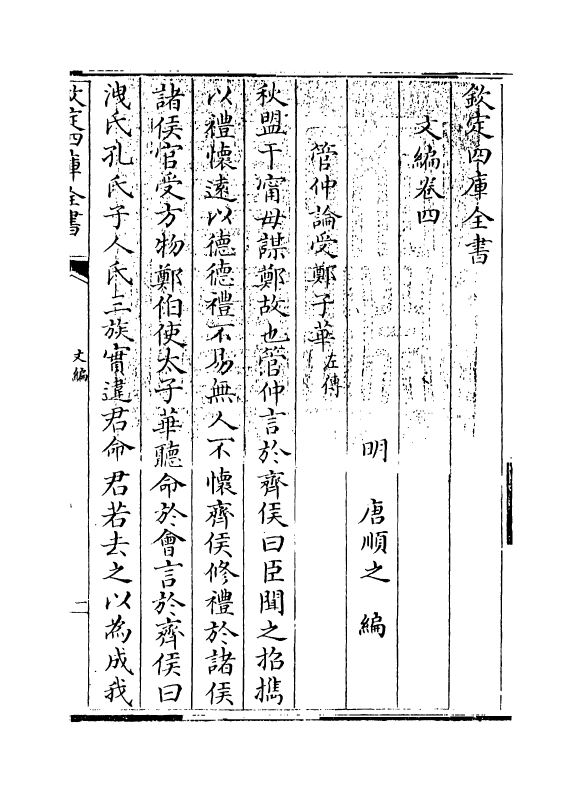 欽定四庫全書
文編卷四
明 唐順之 編
管仲論受鄭子華左傳
秋盟于甯毋謀鄭故也管仲言於齊侯曰臣聞之招攜
以禮懷遠以德德禮不易無人不懷齊侯修禮於諸侯
諸侯官受方物鄭伯使太子華聽命於會言於齊侯曰
洩氏孔氏子人氏三族實違君命君若去之以為成我
欽定四庫全書
文編
二